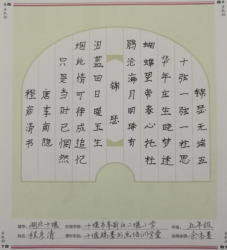 锦瑟无端五
十弦一弦一柱思
华年庄生晓梦迷
蝴蝶望帝春心托杜
鹃沧海月明珠有
锦瑟
泪蓝田日暖玉生
烟此情可待成追忆
只是当时已惘然
唐李商隐
程彦清书
湖北十堰 十堰市茅箭区二堰小学 五年级
程彦清